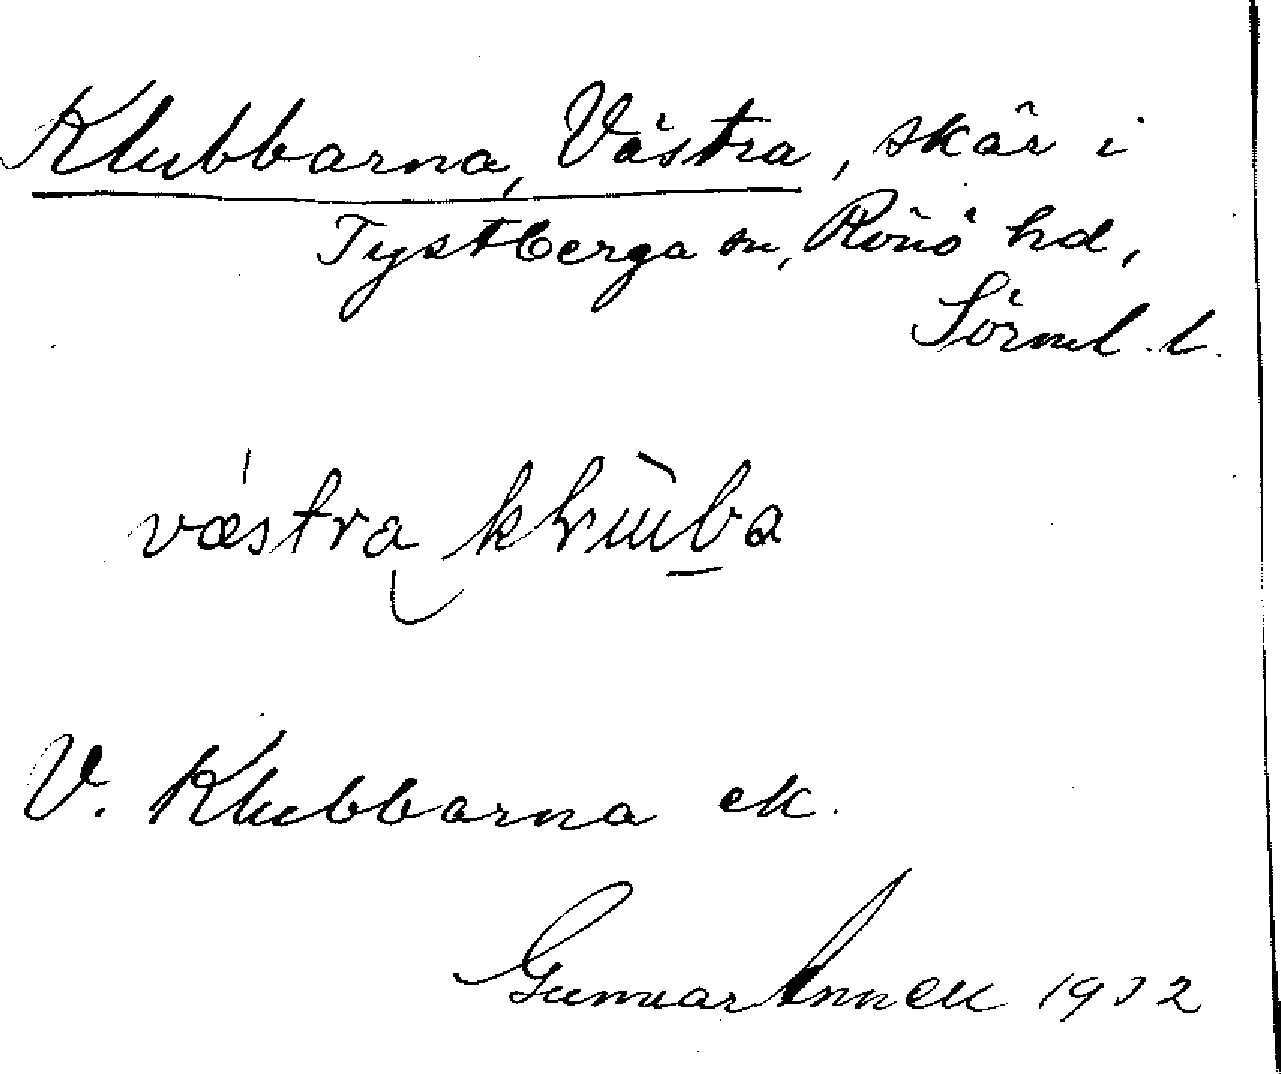 Klubbarna, Västra, skär i
Tystberga sn, Rönö hd,
Sörml. l.
västra
V. Klubbarna ek.
Gunnar 1932